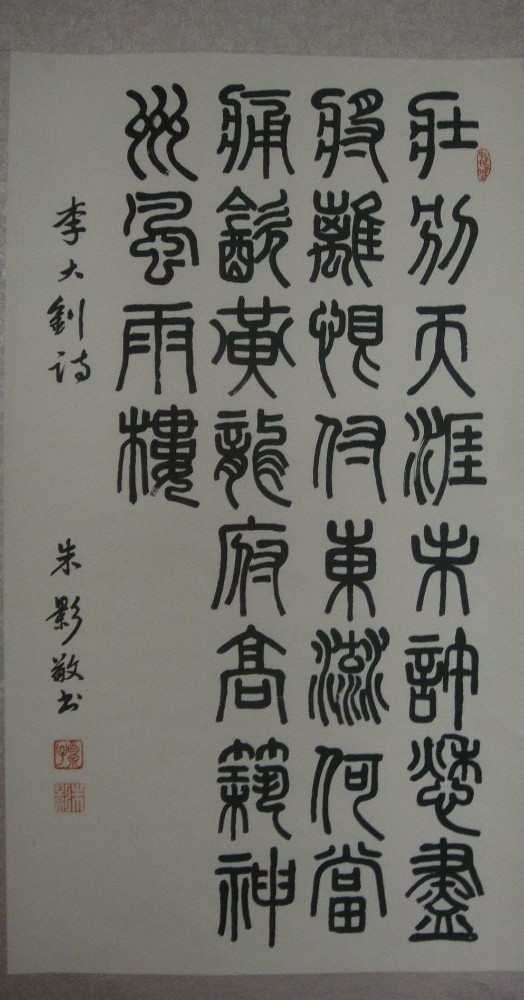 壯別天涯未許愁盡
將離恨付東流何當
痛飲黃龍府高築神
州風雨樓
李大釗诗 朱影敬书